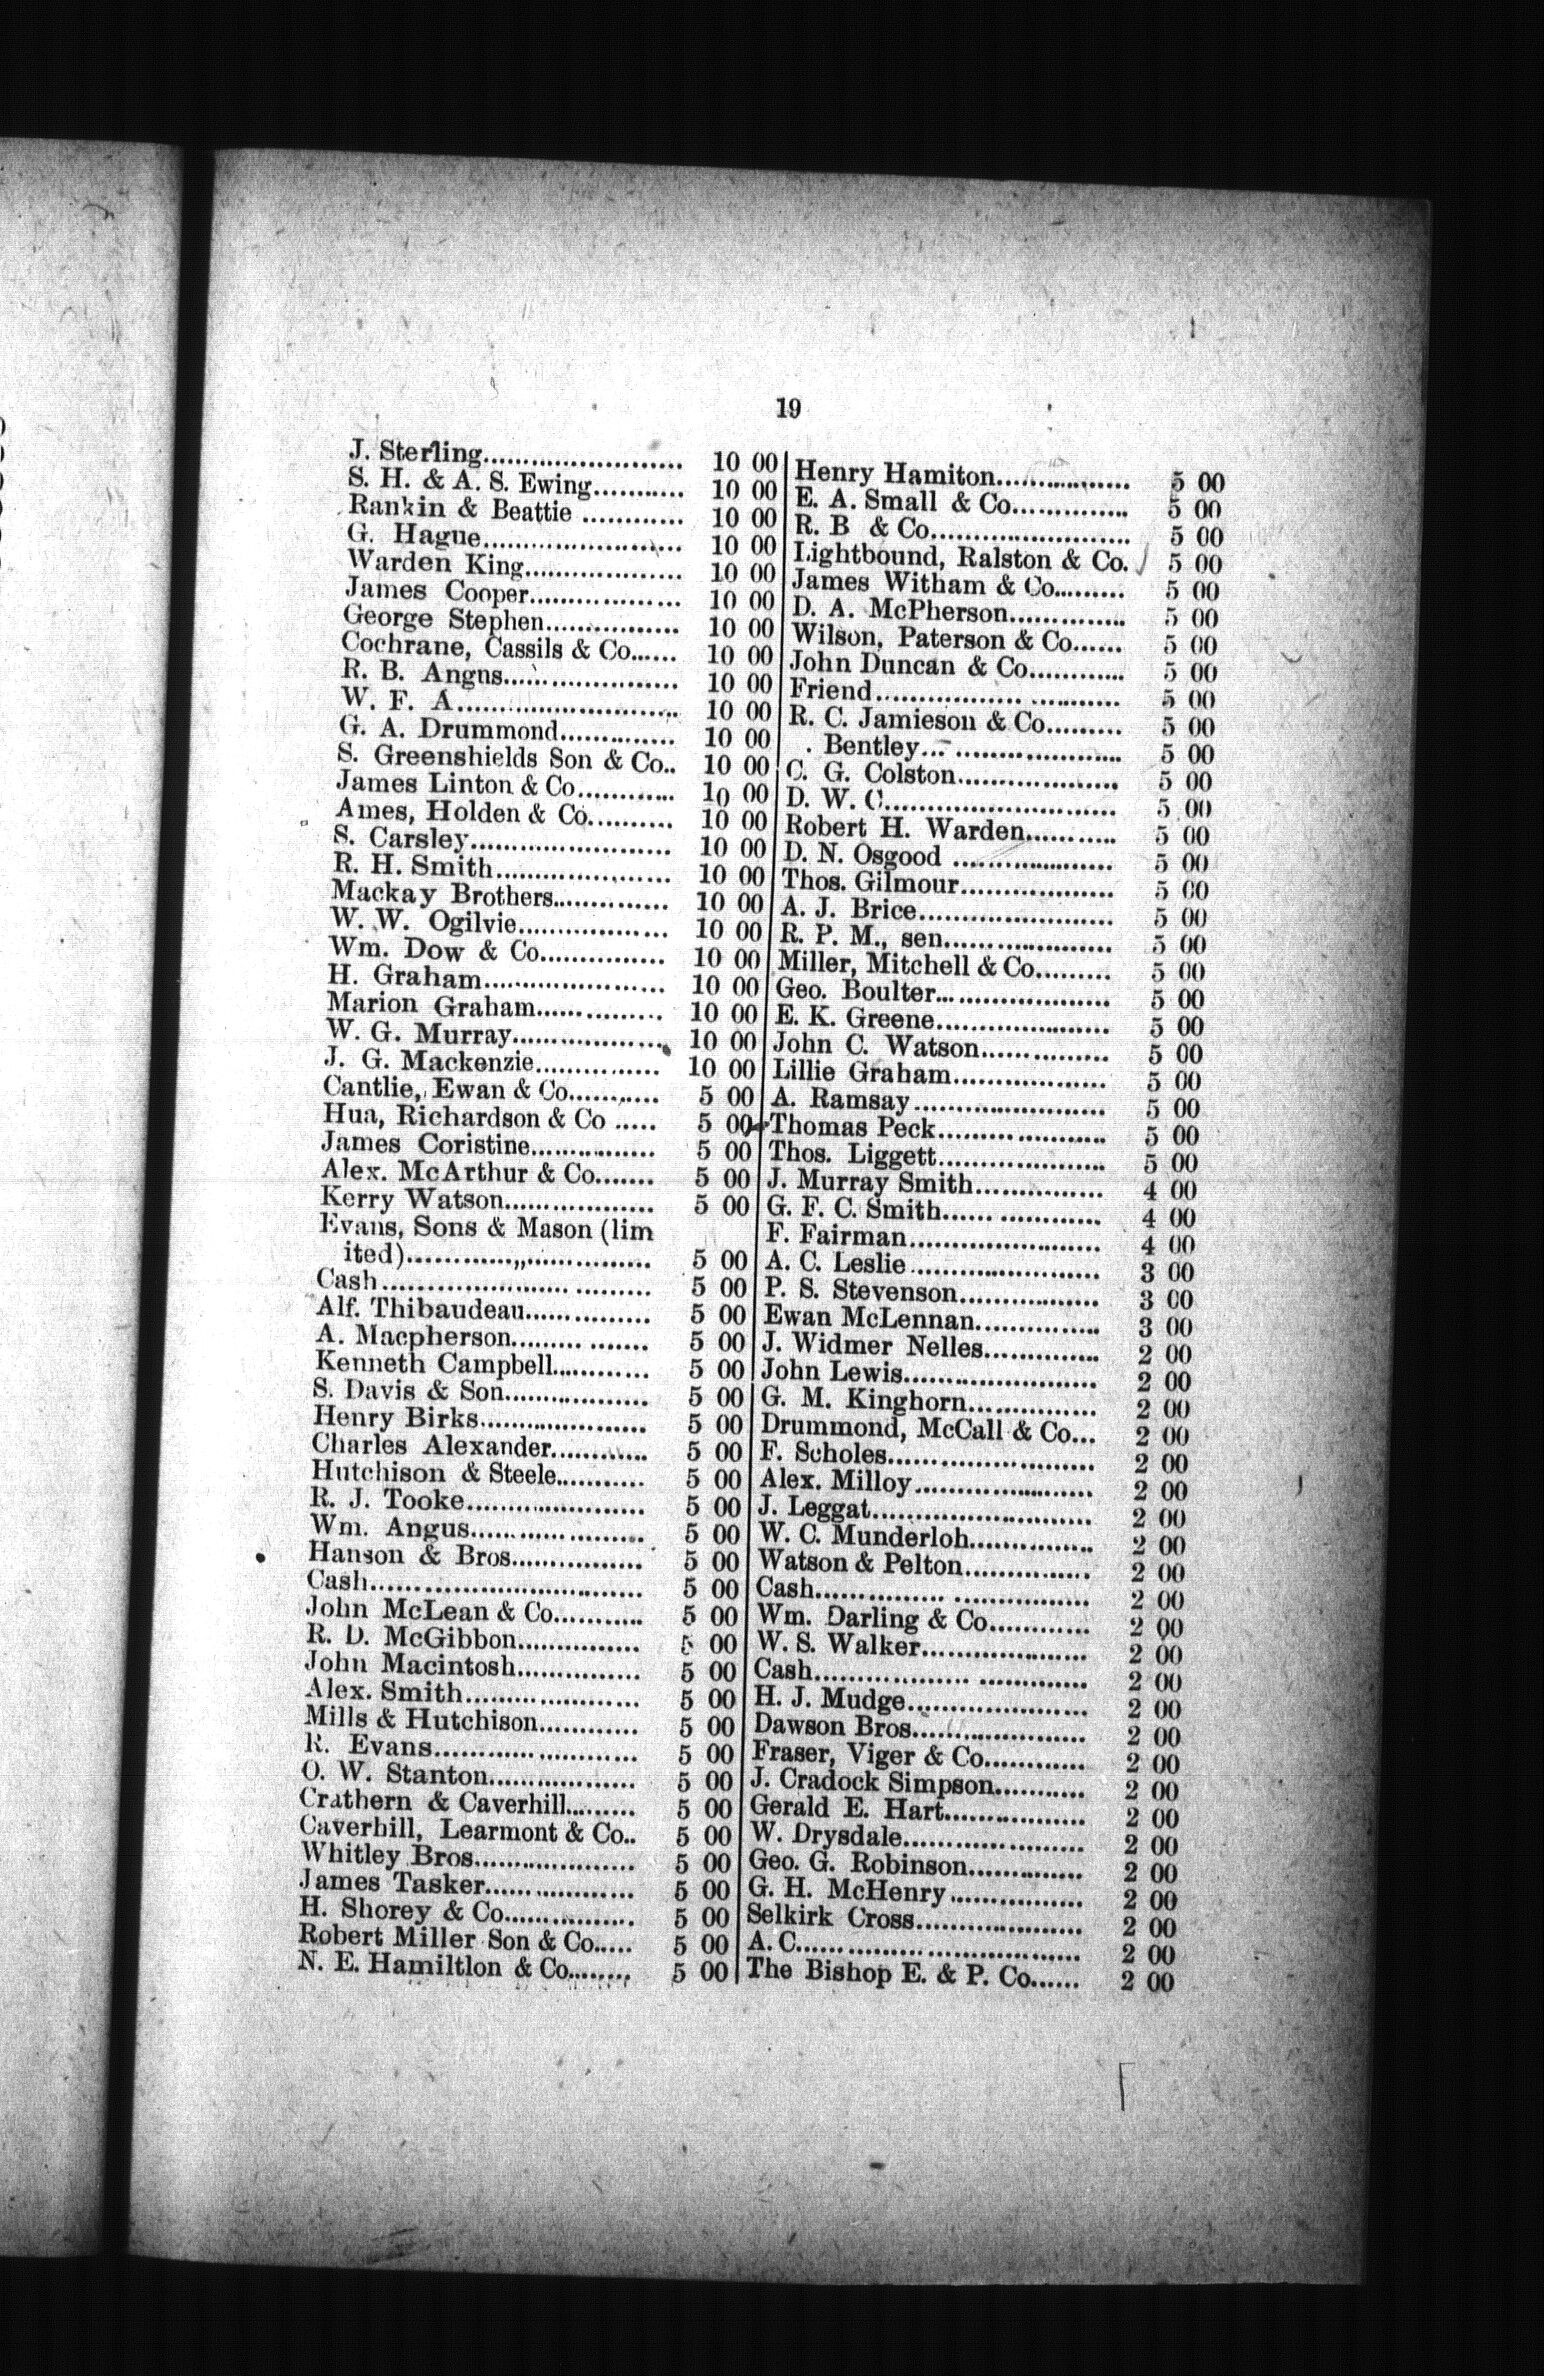 19
J. Sterling........................ 10 00
S. H. & A. S. Ewing........... 10 00
Rankin & Beattie ............ 10 00
G. Hague......................... 10 00
Warden King................... 10 00
James Cooper.................. 10 00
George Stephen................ 10 00
Cochrane, Cassils & Co...... 10 00
R. B. Angns...................... 10 00
W. F. A............................ 10 00
G. A. Drummond.............. 10 00
S. Greenshields Son & Co.. 10 00
James Linton & Co............ 10 00
Ames, Holden & Co.......... 10 00
S. Carsley........................ 10 00
R. H. Smith...................... 10 00
Mackay Brothers.............. 10 00
W. W. Ogilvie.................. 10 00
Wm. Dow & Co............... 10 00
H. Graham...................... 10 00
Marion Graham............... 10 00
W. G. Murray.................. 10 00
J. G. Mackenzie............... 10 00
Cantlie, Ewan & Co........... 5 00
Hua, Richardson & Co ..... 5 00
James Coristine............... 5 00
Alex. McArthur & Co....... 5 00
Kerry Watson.................. 5 00
Evans, Sons & Mason (lim
ited).............................. 5 00
Cash................................ 5 00
Alf. Thibaudeau............... 5 00
A. Macpherson................ 5 00
Kenneth Campbell............ 5 00
S. Davis & Son................. 5 00
Henry Birks.................... 5 00
Charles Alexander............ 5 00
Hutchison & Steele........... 5 00
R. J. Tooke...................... 5 00
Wm. Angus...................... 5 00
Hanson & Bros................ 5 00
Cash................................ 5 00
John McLean & Co........... 5 00
R. D. McGibbon............... 5 00
John Macintosh............... 5 00
Alex. Smith..................... 5 00
Mills & Hutchison............ 5 00
R. Evans......................... 5 00
O. W. Stanton.................. 5 00
Crathern & Caverhill......... 5 00
Caverhill, Learmont & Co.. 5 00
Whitley Bros.................... 5 00
James Tasker.................. 5 00
H. Shorey & Co................ 5 00
Robert Miller Son & Co..... 5 00
N. E. Hamiltlon & Co........ 5 00
Henry Hamiton................ 5 00
E. A. Small & Co.............. 5 00
R. B & Co........................ 5 00
Lightbound, Ralston & Co. 5 00
James Witham & Co......... 5 00
D. A. McPherson.............. 5 00
Wilson, Paterson & Co...... 5 00
John Duncan & Co............ 5 00
Friend.............................. 5 00
R. C. Jamieson & Co......... 5 00
. Bentley........................ 5 00
C. G. Colston.................... 5 00
D. W. C............................ 5 00
Robert H. Warden........... 5 00
D. N. Osgood .................... 5 00
Thos. Gilmour................... 5 00
A. J. Brice........................ 5 00
R. P. M., sen.................... 5 00
Miller, Mitchell & Co......... 5 00
Geo. Boulter..................... 5 00
E. K. Greene..................... 5 00
John C. Watson............... 5 00
Lillie Graham.................. 5 00
A. Ramsay....................... 5 00
Thomas Peck.................... 5 00
Thos. Liggett.................... 5 00
J. Murray Smith............... 4 00
G. F. C. Smith................... 4 00
F. Fairman....................... 4 00
A. C. Leslie....................... 3 00
P. S. Stevenson................. 3 00
Ewan McLennan............... 3 00
J. Widmer Nelles.............. 2 00
John Lewis....................... 2 00
G. M. Kinghorn................ 2 00
Drummond, McCall & Co... 2 00
F. Scholes......................... 2 00
Alex. Milloy...................... 2 00
J. Leggat.......................... 2 00
W. C. Munderloh............... 2 00
Watson & Pelton............... 2 00
Cash................................ 2 00
Wm. Darling & Co............ 2 00
W. S. Walker.................... 2 00
Cash................................ 2 00
H. J. Mudge...................... 2 00
Dawson Bros..................... 2 00
Fraser, Viger & Co............ 2 00
J. Cradock Simpson........... 2 00
Gerald E. Hart................. 2 00
W. Drysdale...................... 2 00
Geo. G. Robinson.............. 2 00
G. H. McHenry................ 2 00
Selkirk Cross.................... 2 00
A. C................................. 2 00
The Bishop E. & P. Co...... 2 00